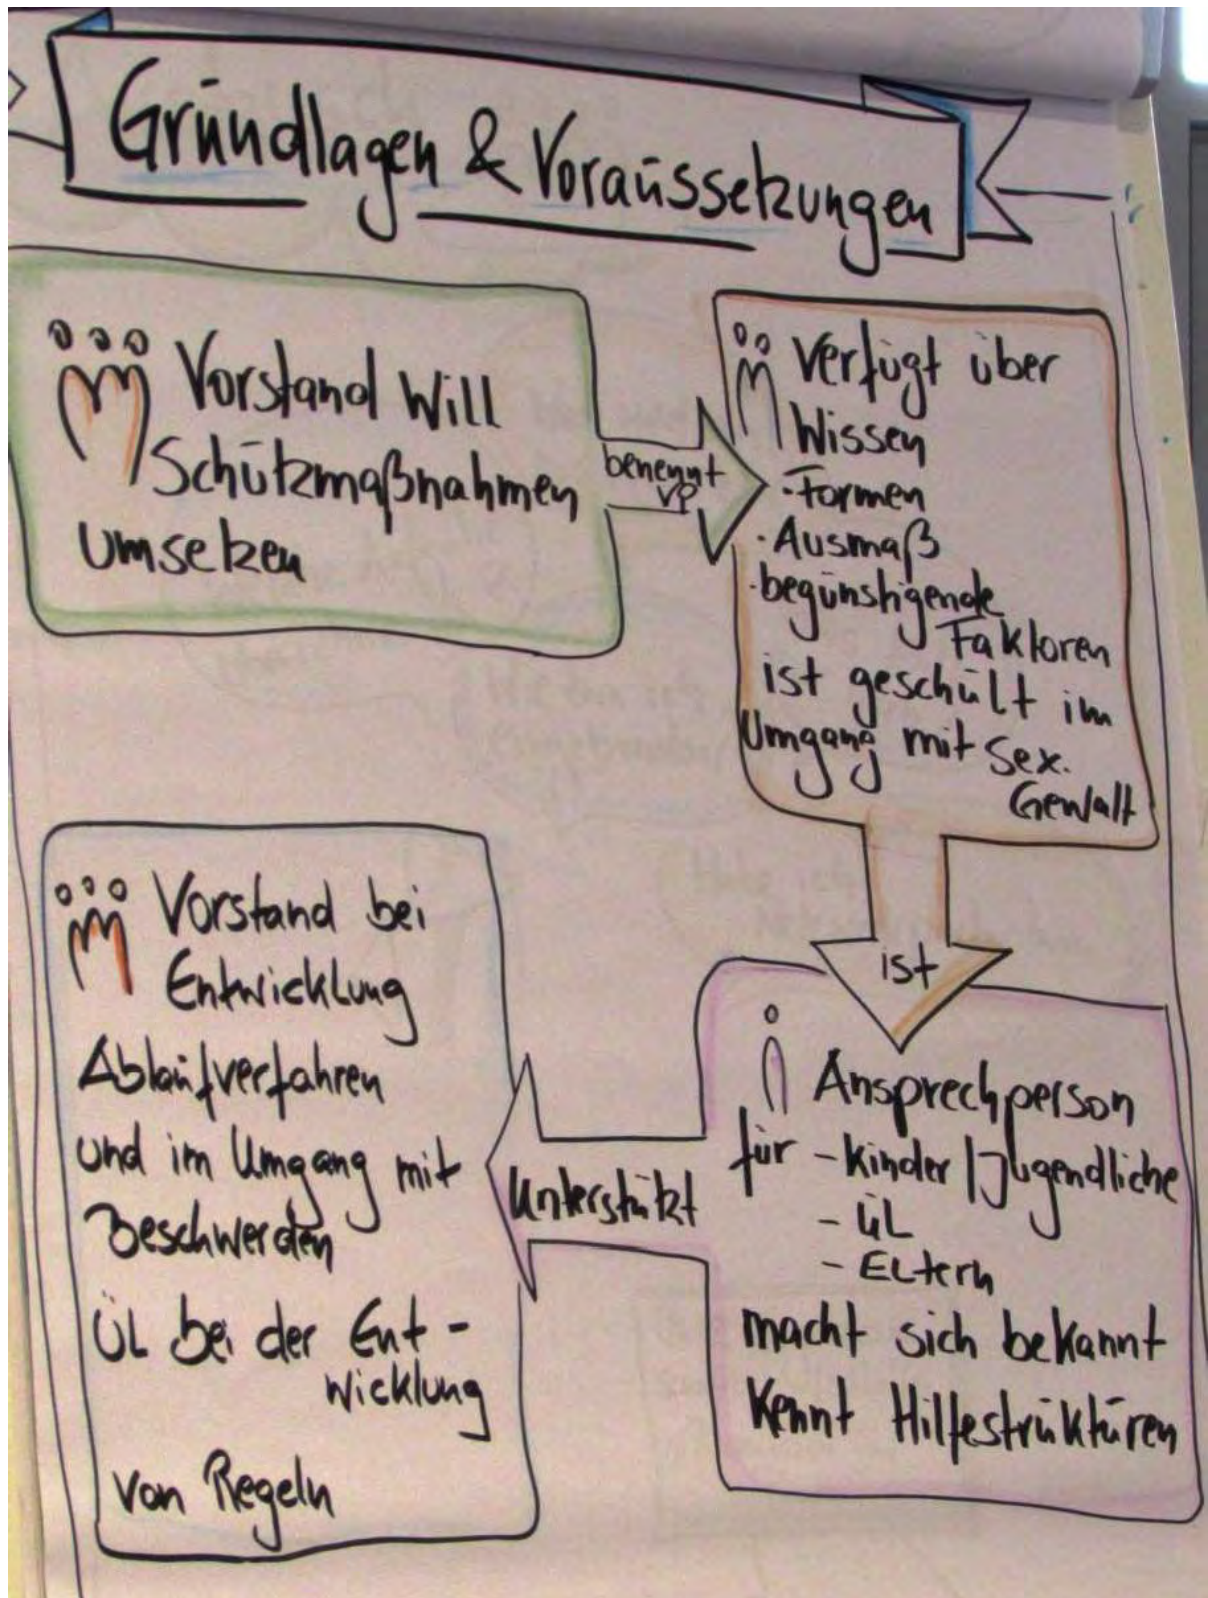 Grundlagen & Voraussetzungen
Vorstand Will
Schutzmaßnahmen
umsetzen
benennt
VP
Verfügt über
Wissen
·Formen
·Ausmaß
·begünstigende
Faktoren
ist geschult im
Umgang mit sex.
Gewalt
ist
Ansprechperson
für -Kinder/Jugendliche
- ÜL
- Eltern
macht sich bekannt
kennt Hilfestrukturen
unterstützt
Vorstand bei
Entwicklung
Ablaufverfahren
und im Umgang mit
Beschwerden
ÜL bei der Ent-
wicklung
von Regeln